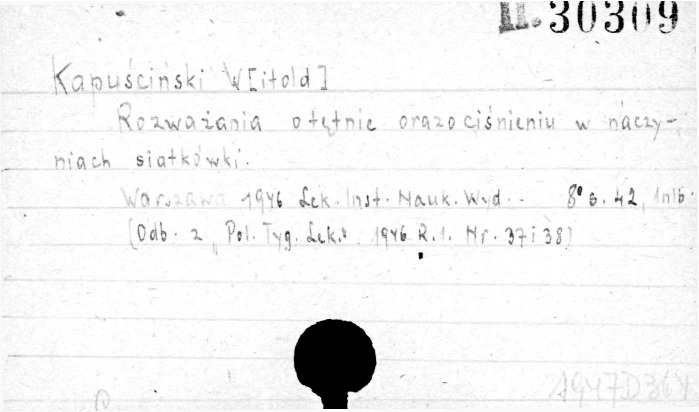 II. 30309
Kapuściński W[itold]
Rozważania o tętnie oraz o ciśnieniu w naczy-
niach siatkówki.
Warszawa 1946 Lek. Inst. Nauk. Wyd. 8° s. 42, 1nlb.
(Odb. z „Pol. Tyg. Lek." 1946 R.1. Nr. 37 i 38)
1947D364